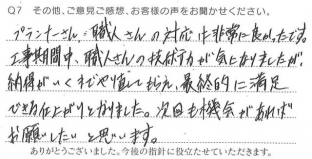 Q7 その他、ご意見ご感想、お客様の声をお聞かせください。
プランナーさん、職人さんの対応は非常に良かったです。
工事期間中、職人さんの技術力が気になりましたが、
納得がいくまでやり直してもらえ、最終的に満足
できる仕上がりとなりました。次回も機会があれば
お願いしたいと思います。
ありがとうございました。今後の指針に役立たせていただきます。